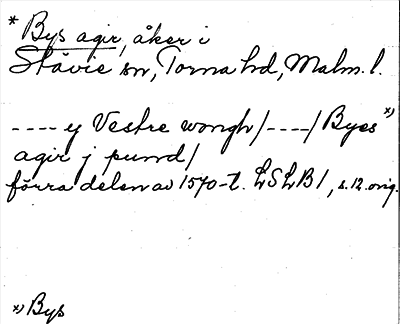 * Bys agir, åker i
Stävie sn, Torna hd, Malm. l.
---- y Vestre wongh/----/ Byes *)
agir j pund/
förra delen av 1570-t. LSLB 1, s. 12. orig.
*) Bys